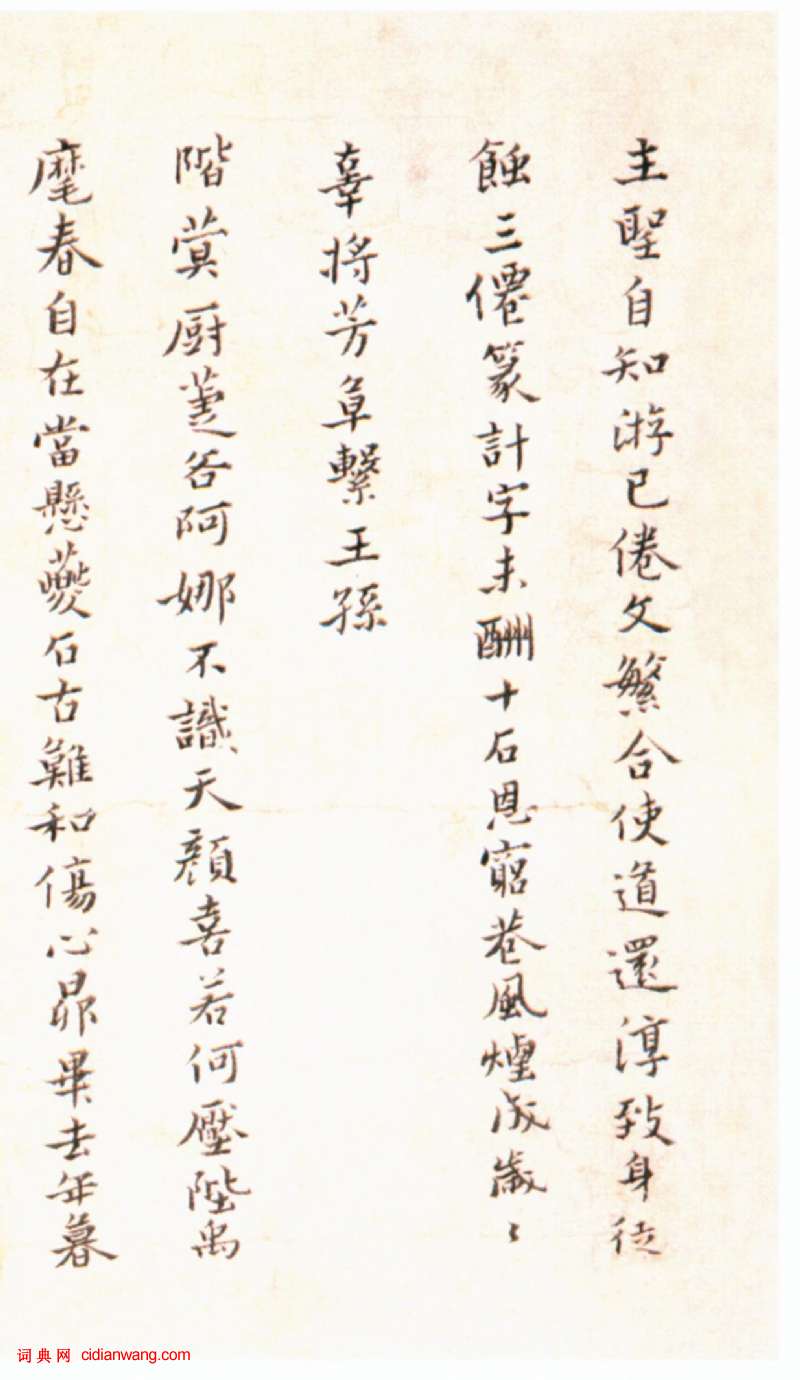 主聖自知游已倦文繁合使道還淳致身徒
蝕三僊篆計字未酬十石恩窮巷風煙成歲〻
辜將芳草繫王孫
階蓂厨萐谷阿娜不識天顔喜若何壓陛禹
麾春自在當懸夔石古難和傷心昴畢去年暮
词典网 cidianwang.com